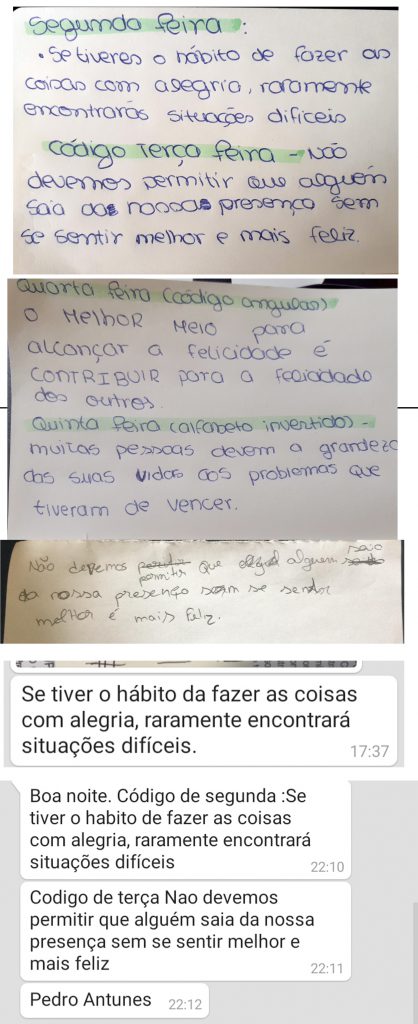 Segunda feira :
• Se tiveres o hábito de fazer as
coisas com alegria, raramente
encontrarás situações dificeis
Código Terça feira - Não
devemos permitir que alguém
saia da nossa presença sem
se sentir melhor e mais feliz.
Quarta feira (código angulas)
O MELHOR MEIO para
alcançar a felicidade é
CONTRIBUIR para a felicidade
dos outros.
Quinta feira (alfabeto invertido) -
muitas pessoas devem a grandeza
das suas vidas aos problemas que
tiveram de vencer.
Não devemos permitir que alguem saia
da nossa presença sem se sentir
melhor e mais feliz.
Se tiver o hábito da fazer as coisas
com alegria, raramente encontrará
situações difíceis.
17:37
Boa noite. Código de segunda :Se
tiver o habito de fazer as coisas
com alegria, raramente encontrará
situações difíceis
22:10
Codigo de terça Nao devemos
permitir que alguém saia da nossa
presença sem se sentir melhor e
mais feliz
22:11
Pedro Antunes 22:12